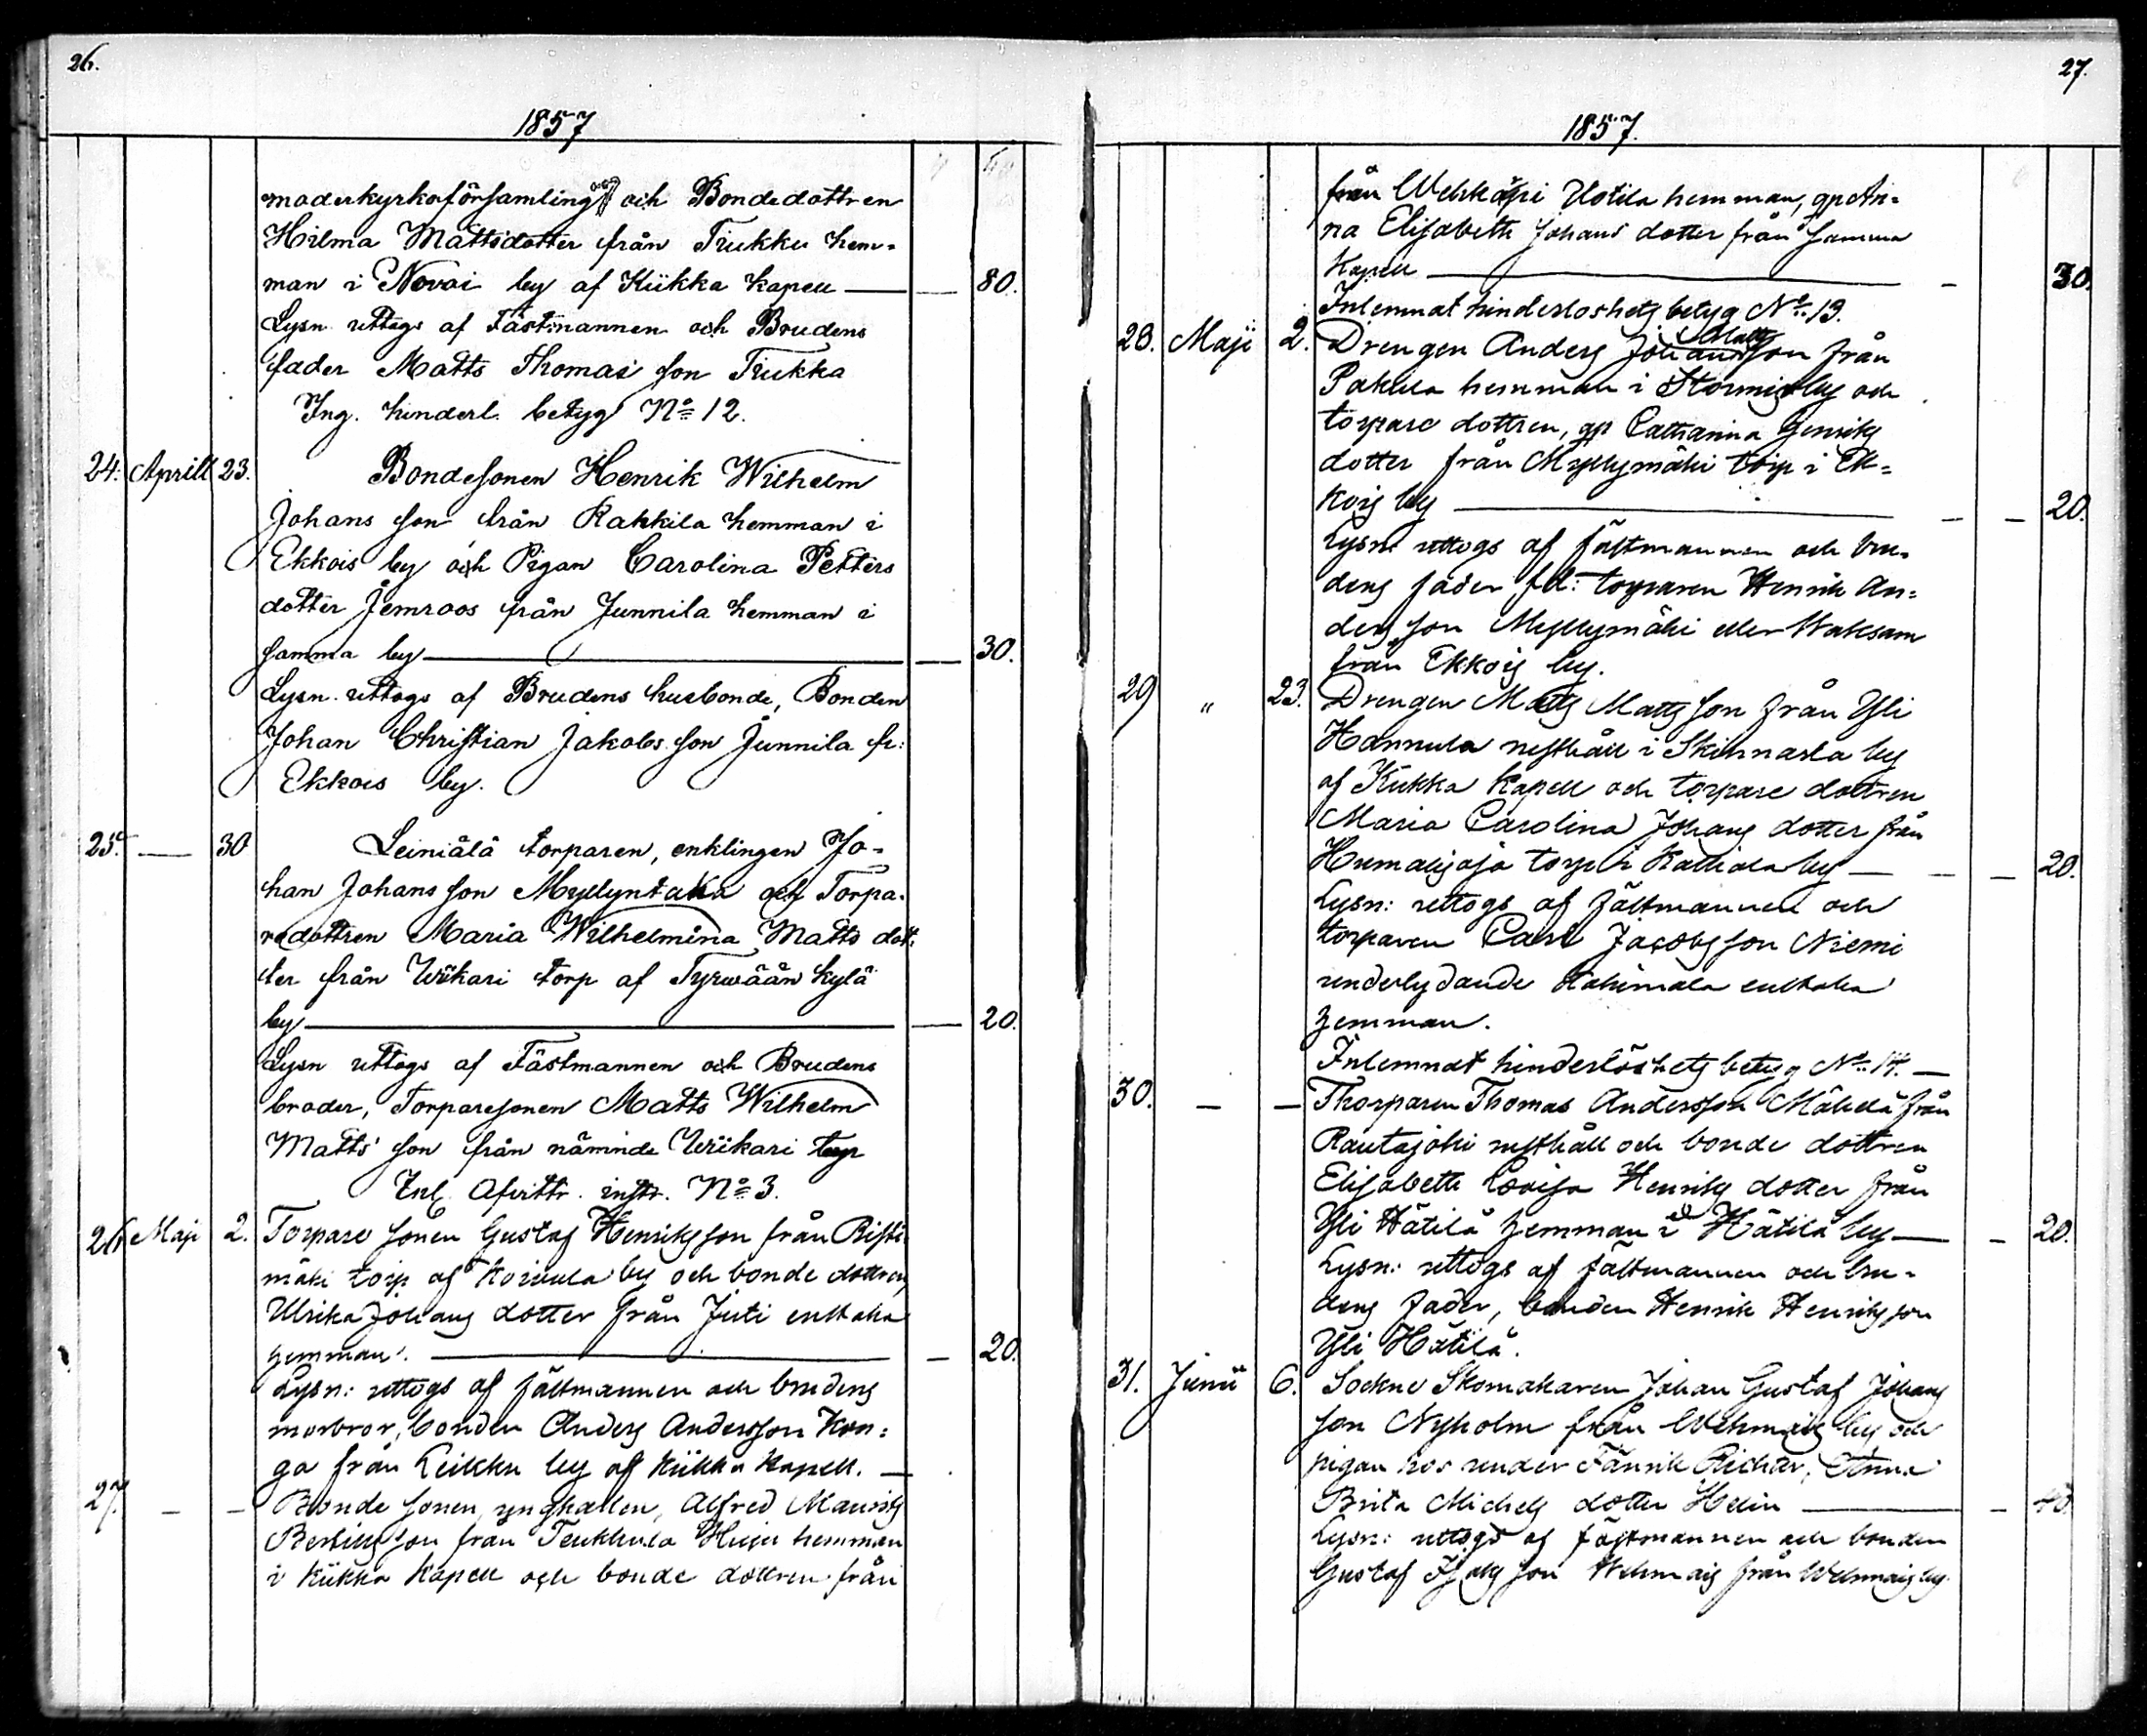 26.
1857
moderkyrkoförsamling och Bondedottren
Hilma Mattsdotter från Tiukku hem-
man i Novoi by af Kiikka kapell — — 80.
Lysn uttogs af Fästmannen och Brudens
fader Matts Thomas son Tiukka
Ing. hinderl. betyg No 12.
24. Aprill 23. Bondesonen Henrik Wilhelm
Johans son från Rakkila hemman i
Ekkois by och Pigan Carolina Petters
dotter Jemroos från Junnila hemman i
samma by — — 30.
Lysn. uttogs af Brudens husbonde, Bonden
Johan Christian Jakobs son Junnila fr:
Ekkois by.
25. — 30 Leiniälä torparen, enklingen Jo-
han Johans son Myllyntaka och Torpa-
redottren Maria Wilhelmina Matts dot-
ter från Wiikari torp af Tyrwään kylä
by — — 20.
Lysn uttogs af Fästmannen och Brudens
broder, Torparesonen Matts Wilhelm
Matts' son från nämnde Wiikari torp
Inl. Afvittr. instr. No 3.
26. Maji 2. Torpare sonen Gustaf Henriksson från Risti
mäki torp af Koivula by och bonde dottren,
Ulrika Johans dotter från Juti enstaka
hemman. — — 20.
Lysn: uttogs af fästmannen och brudens
morbror, bonden Anders Andersson Kon-
ga från Leikku by af Kiikka Kapell. —
27. — — Bonde sonen, ynglingen, Alfred Mauritz
Bertils son från Teukkula Huju hemman
i Kiikka Kapell och bonde dottren från
27.
1857.
från Wehkäpi Uotila hemman, gp An-
na Elisabeth Johans dotter från samma
Kapell — — 30.
Inlemnat hinderloshets betyg No 13.
Matts
28. Maji 2. Drengen Anders Johansson från
Pakula hemman i Stormis by och
torpare dottren, gp Catharina Henriks
dotter från Myllymäki torp i Ek-
kois by — — — 20.
Lysn: uttogs af fästmannen och bru-
dens fader, f.d: torparen Henrik An-
ders son Myllymäki eller Waksam
från Ekkois by.
29 " 23. Drengen Matts Matts son från Yli
Hannula rusthåll i Skinnarla by
af Kiikka Kapell och torpare dottren
Maria Carolina Johans dotter från
Humalijoja torp i Kallials by — — — 20.
Lysn: uttogs af fästmannen och
torparen Carl Jacobsson Niemi
underlydande Kahimala enstaka
hemman.
Inlemnat hinderlöshets betyg No 14. —
30. — — Thorparen Thomas Andersson Mäkelä från
Rautajoki rusthåll och bonde dottren
Elisabeth Lovisa Henriks dotter från
Yli Hätilä hemman i Hätilä by — — 20.
Lysn: uttogs af fästmannen och bru-
dens fader, bonden Henrik Henriksson
Yli Hätilä.
31. Junii 6. Sockne Skomakaren Johan Gustaf Johans
son Nyholm från Wehmais by och
pigan hos under Fänrik Richter, Anna
Brita Michels dotter Helin — — 40.
Lysn: uttogs af fästmannen och bonden
Gustaf Isaks son Wehmais från Wehmais by.